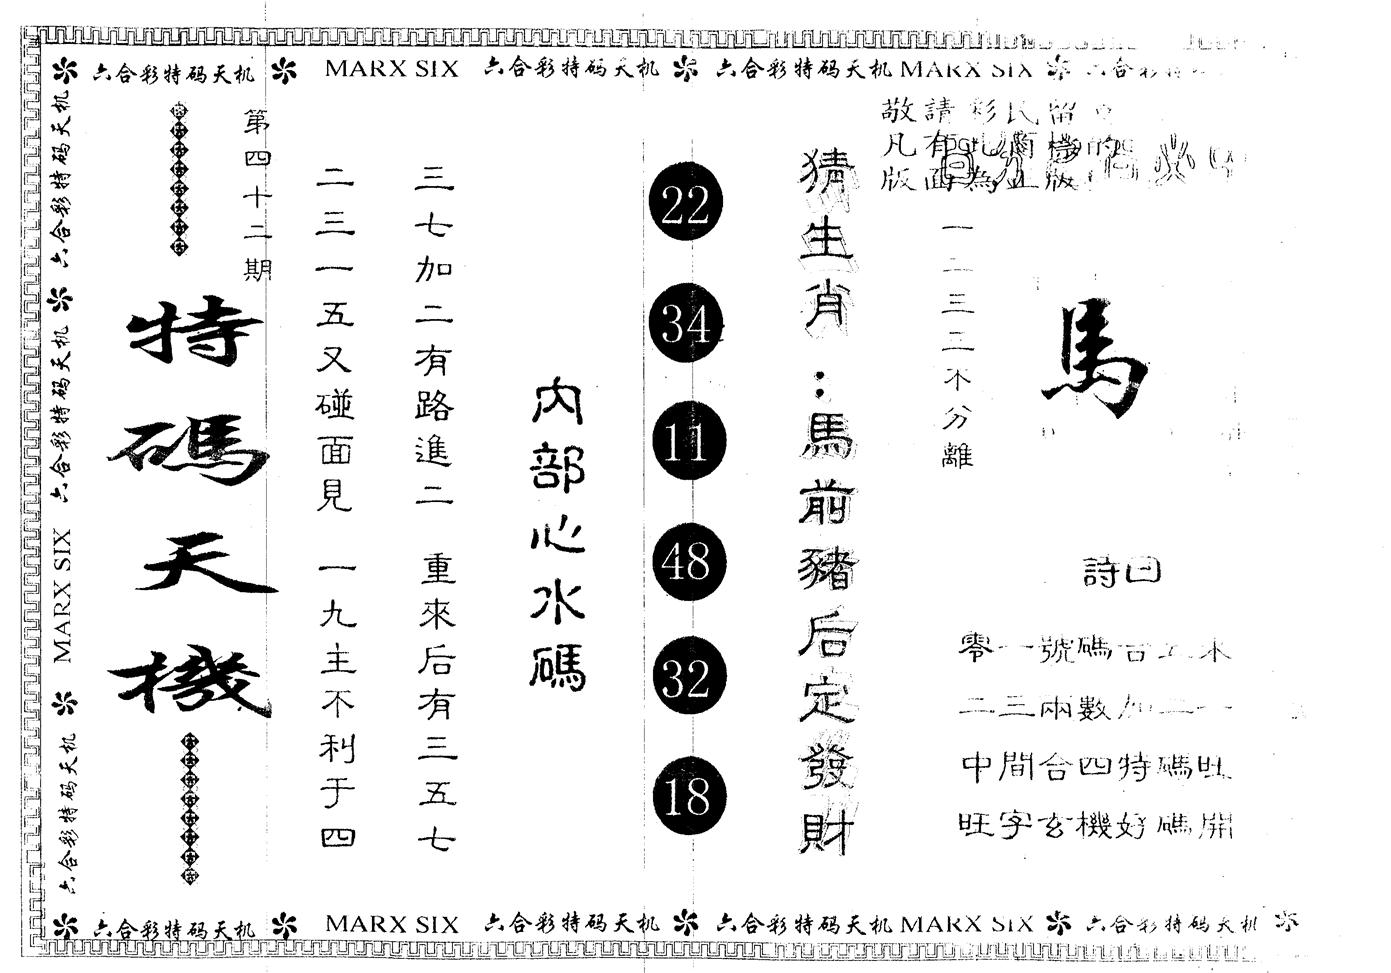 六合彩特码天机 MARX SIX 六合彩特码天机 六合彩特码天机 MARX SIX 六合彩特
六合彩特码天机
六合彩特码天机
MARX SIX
六合彩特码天机
第四十二期
特碼天機
二三一五又碰面見 一九主不利于四
三七加二有路進二 重來后有三五七
內部心水碼
22
34
11
48
32
18
猜生肖：馬前豬后定發財
敬請彩民留
凡有
版面為正版
一二三三不分離
馬
詩曰
零一號碼古 來
二三兩數加二一
中間合四特碼旺
旺字玄機好碼開
六合彩特码天机 MARX SIX 六合彩特码天机 六合彩特码天机 MARX SIX 六合彩特码天机